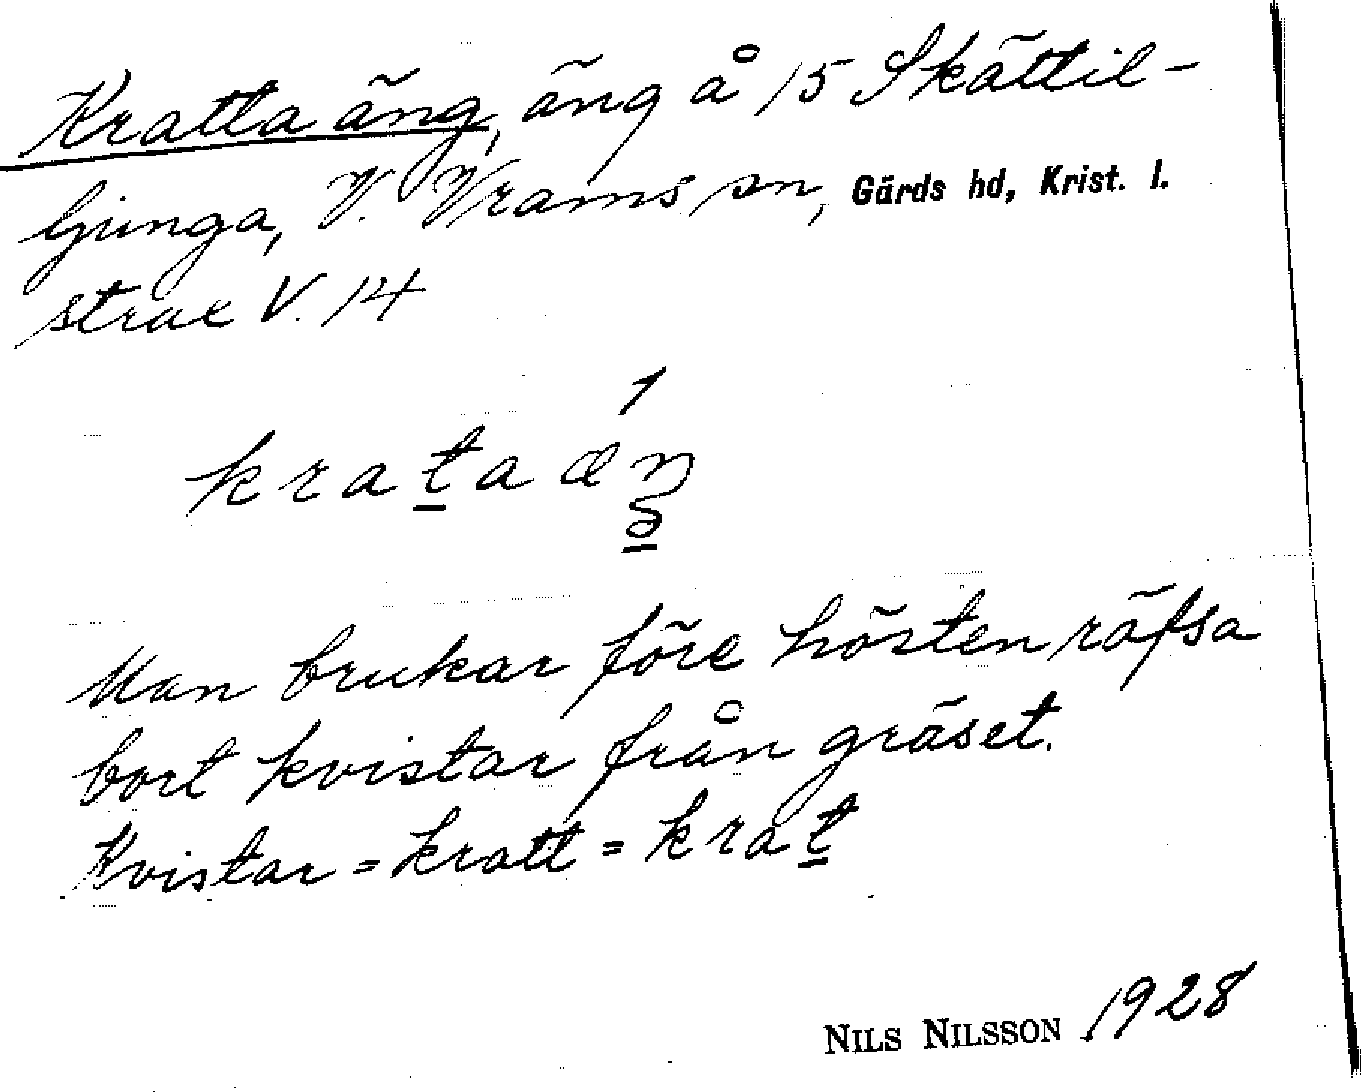 Kratta äng, äng å 15 Skättil-
ljunga, V. Vrams sn, Gärds hd, Krist. l.
strax V. 14
krata æŋ
Man brukar före hösten räfsa
bort kvistar från gräset.
Kvistar = kratt = krat
NILS NILSSON 1928